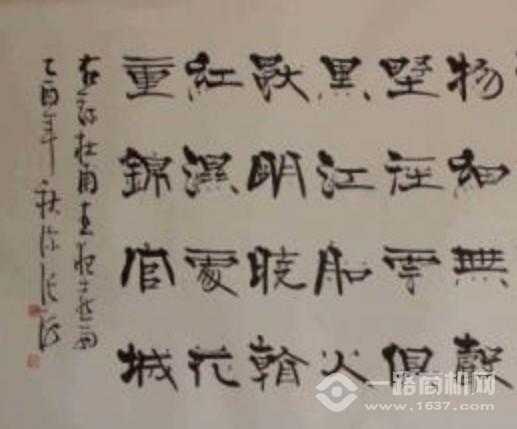 物細無聲
野徑雲俱
黑江船火
獨明曉看
紅濕處花
重錦官城
右录杜甫春夜喜雨
乙酉年秋
一路商机网
www.1637.com